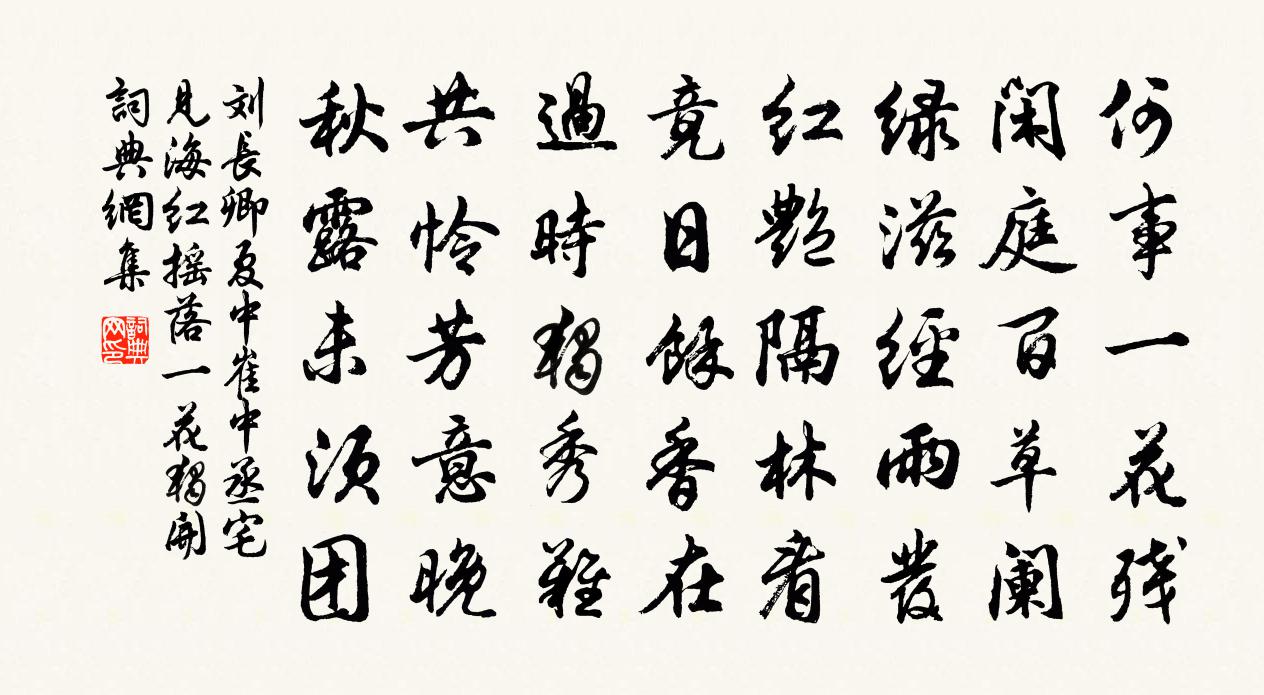 何事一花残
闲庭百草阑
绿滋經雨發
红艶隔林看
竟日餘香在
過時獨秀難
共怜芳意晚
秋露未须团
刘長卿夏中崔中丞宅
見海红摇落一花獨開
詞典網集
詞典网印